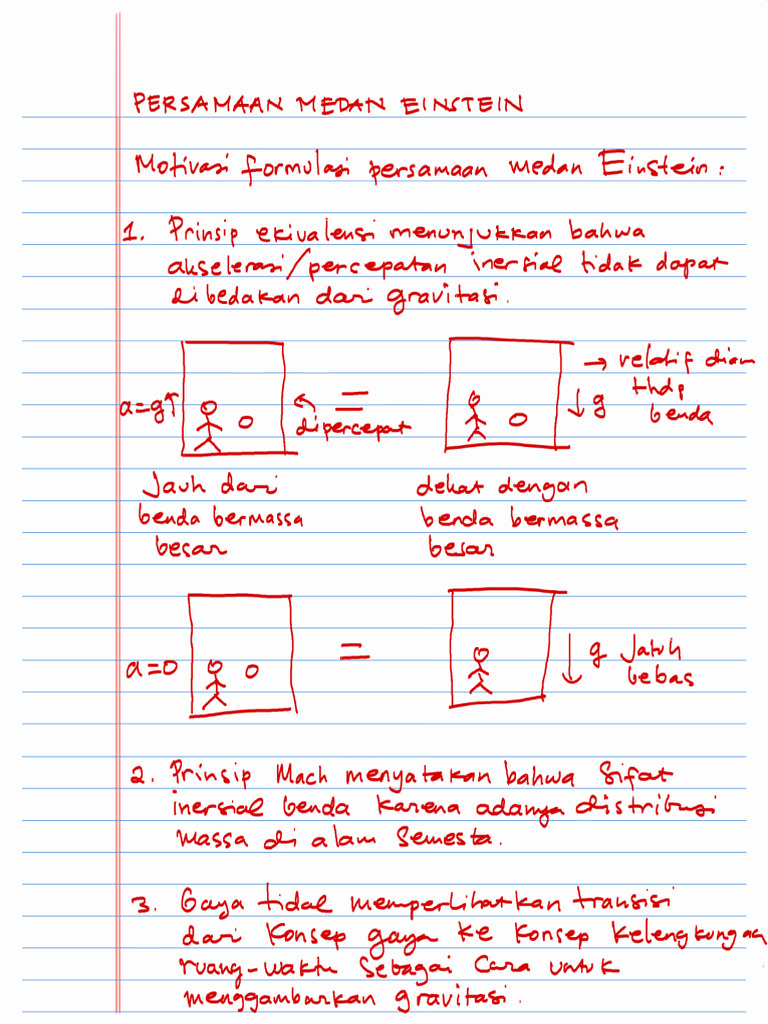 PERSAMAAN MEDAN EINSTEIN
Motivasi formulasi persamaan medan Einstein :
1. Prinsip ekivalensi menunjukkan bahwa
akselerasi/percepatan inersial tidak dapat
dibedakan dari gravitasi.
a=g↑
dipercepat
=
↓ g
→ relatif diam
thdp
benda
Jauh dari
benda bermassa
besar
dekat dengan
benda bermassa
besar
a=0
=
↓ g Jatuh
bebas
2. Prinsip Mach menyatakan bahwa sifat
inersial benda karena adanya distribusi
massa di alam semesta.
3. Gaya tidal memperlihatkan transisi
dari konsep gaya ke konsep kelengkungan
ruang-waktu sebagai cara untuk
menggambarkan gravitasi.